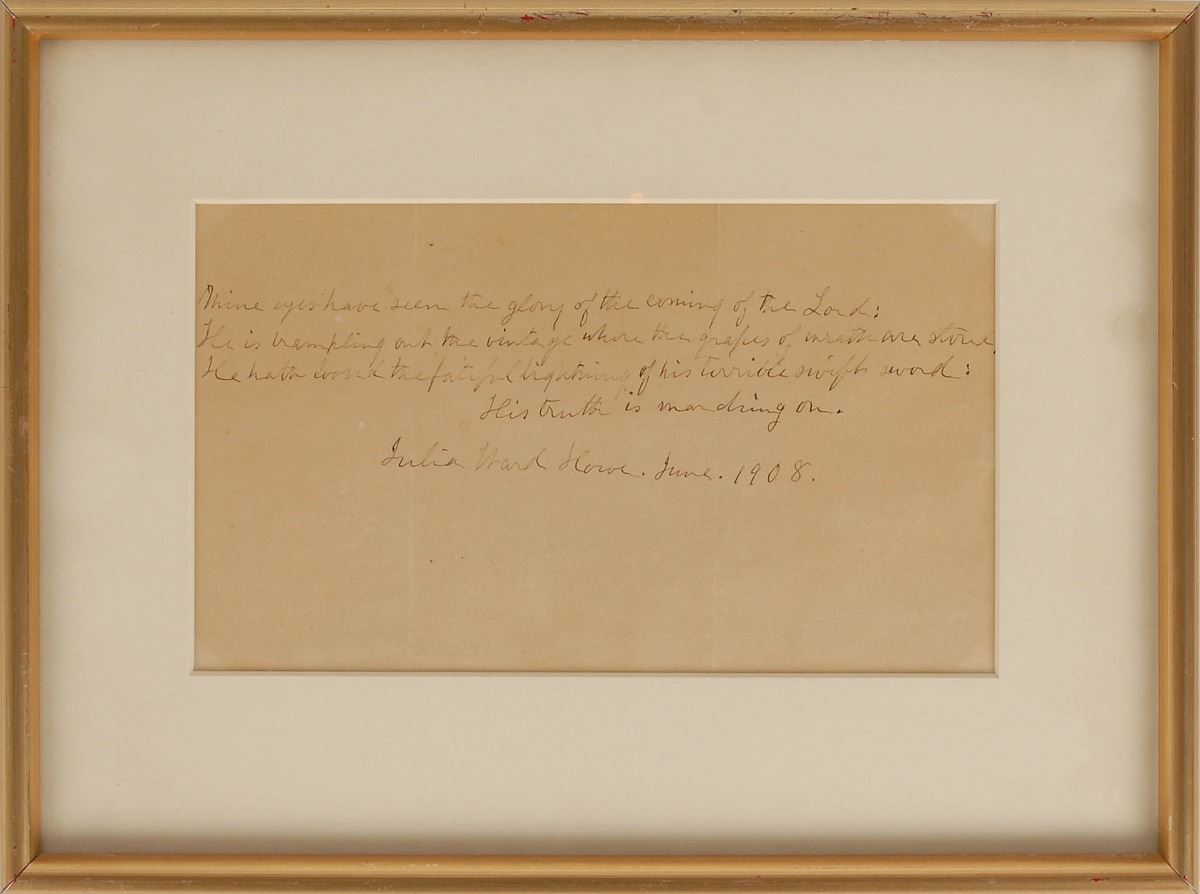 Mine eyes have seen the glory of the coming of the Lord:
He is trampling out the vintage where the grapes of wrath are stored
He hath loosed the fateful lightning of his terrible swift sword:
His truth is marching on.
Julia Ward Howe. June. 1908.